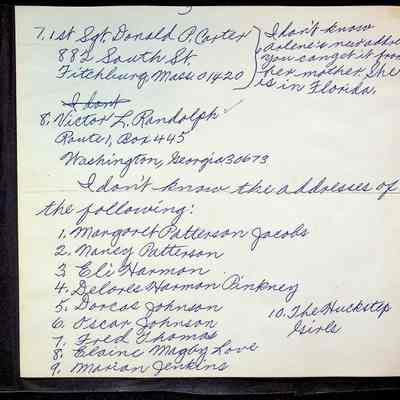 7. 1st Sgt. Donald P. Carter
882 South St.
Fitchburg, Mass. 01420
I don't know
Arlene's new address
you can get it from
her mother. She
is in Florida.
I dont
8. Victor L. Randolph
Route 1, Box 445
Washington, Georgia 30673
I don't know the addresses of
the following:
1. Margaret Patterson Jacobs
2. Nancy Patterson
3 Eli Harmon
4. Delores Harmon Pinkney
5. Dorcas Johnson
6. Oscar Johnson
7. Fred Thomas
8. Elaine Magby Love
9. Marian Jenkins
10. The Huckstep
Girls